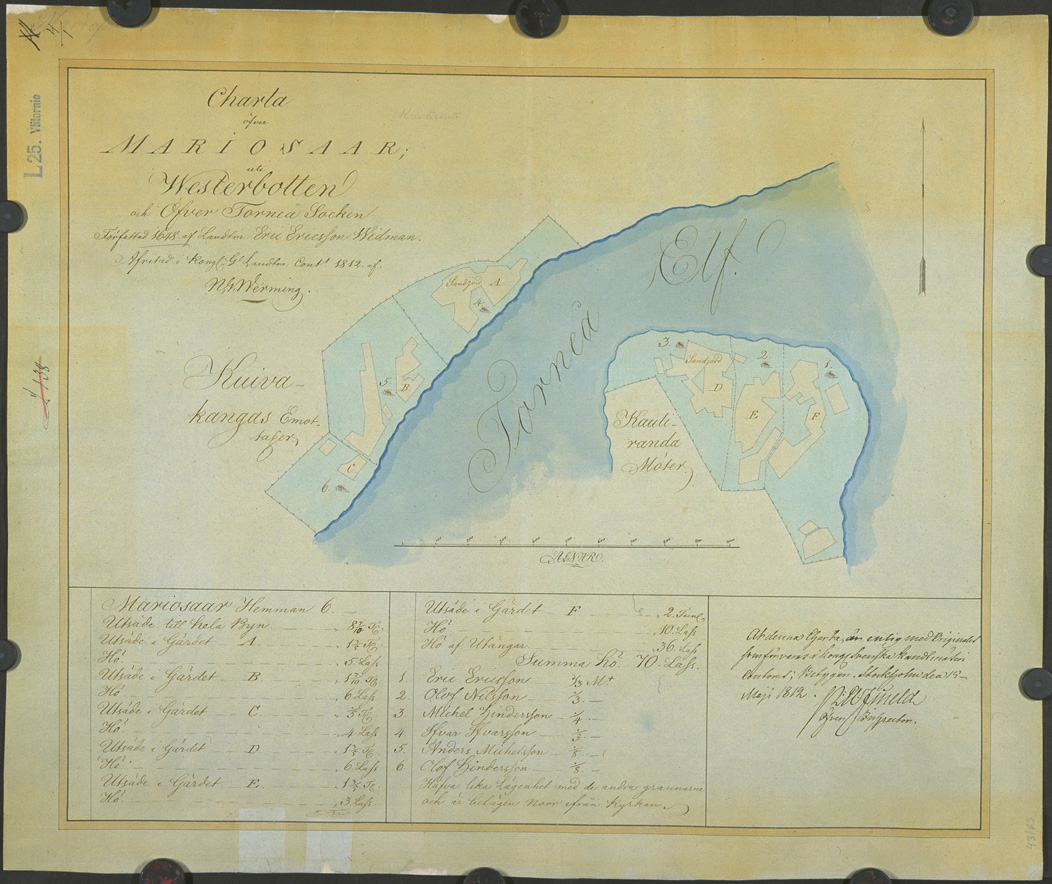 L 25. Ylitornio
Charta
öfver
MARIOSAAR;
uti
Westerbotten
och Öfver Torneå Socken
Författad 1648 af Landtm. Eric Ericsson Widman.
Afritad i Kongl. Gl. Landtm. Cont. 1812. af
Werming.
Kuiva-
kangas Emot-
tager
Torneå Elf.
Sandjord A.
4.
5.
B
C
6.
3.
Sandjord
D
2.
E
1.
F
Kauli-
randa
Möter
ALNAR.
Mariosaar Hemman 6.
Utsäde till hela Byn
Utsäde i Gärdet A
Hö 5 Lass
Utsäde i Gärdet B
Hö 6 Lass
Utsäde i Gärdet C.
Hö 4 Lass
Utsäde i Gärdet D
Hö 6 Lass
Utsäde i Gärdet E.
Hö 3 Lass
Utsäde i Gärdet F 2. Tunl
Hö 10 Lass
Hö af Utängar 36 Lass
Summa Hö. 70. Lass.
1 Eric Ericsson
2. Olof Nilsson
3. Michel Hindersson
4 Ifvar Ifvarsson
5 Anders Michelsson
6. Olof Hindersson
Hafva lika Lägenhet med de andra grannarne
och är belägen Norr ifrån Kyrkan
At denna Charta är enlig med Originalet
som förvaras i Kongl. Svenska Landtmäteri
Contoret; betygar. Stockholm den
Maji 1812.